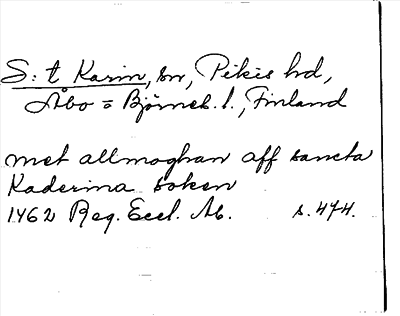 S:t Karin, sn, Pikis hd,
Åbo = Björneb. l., Finland
met allmoghan aff sancta
Kaderina soken
1462 Reg. Eccl. Ab. s. 474.